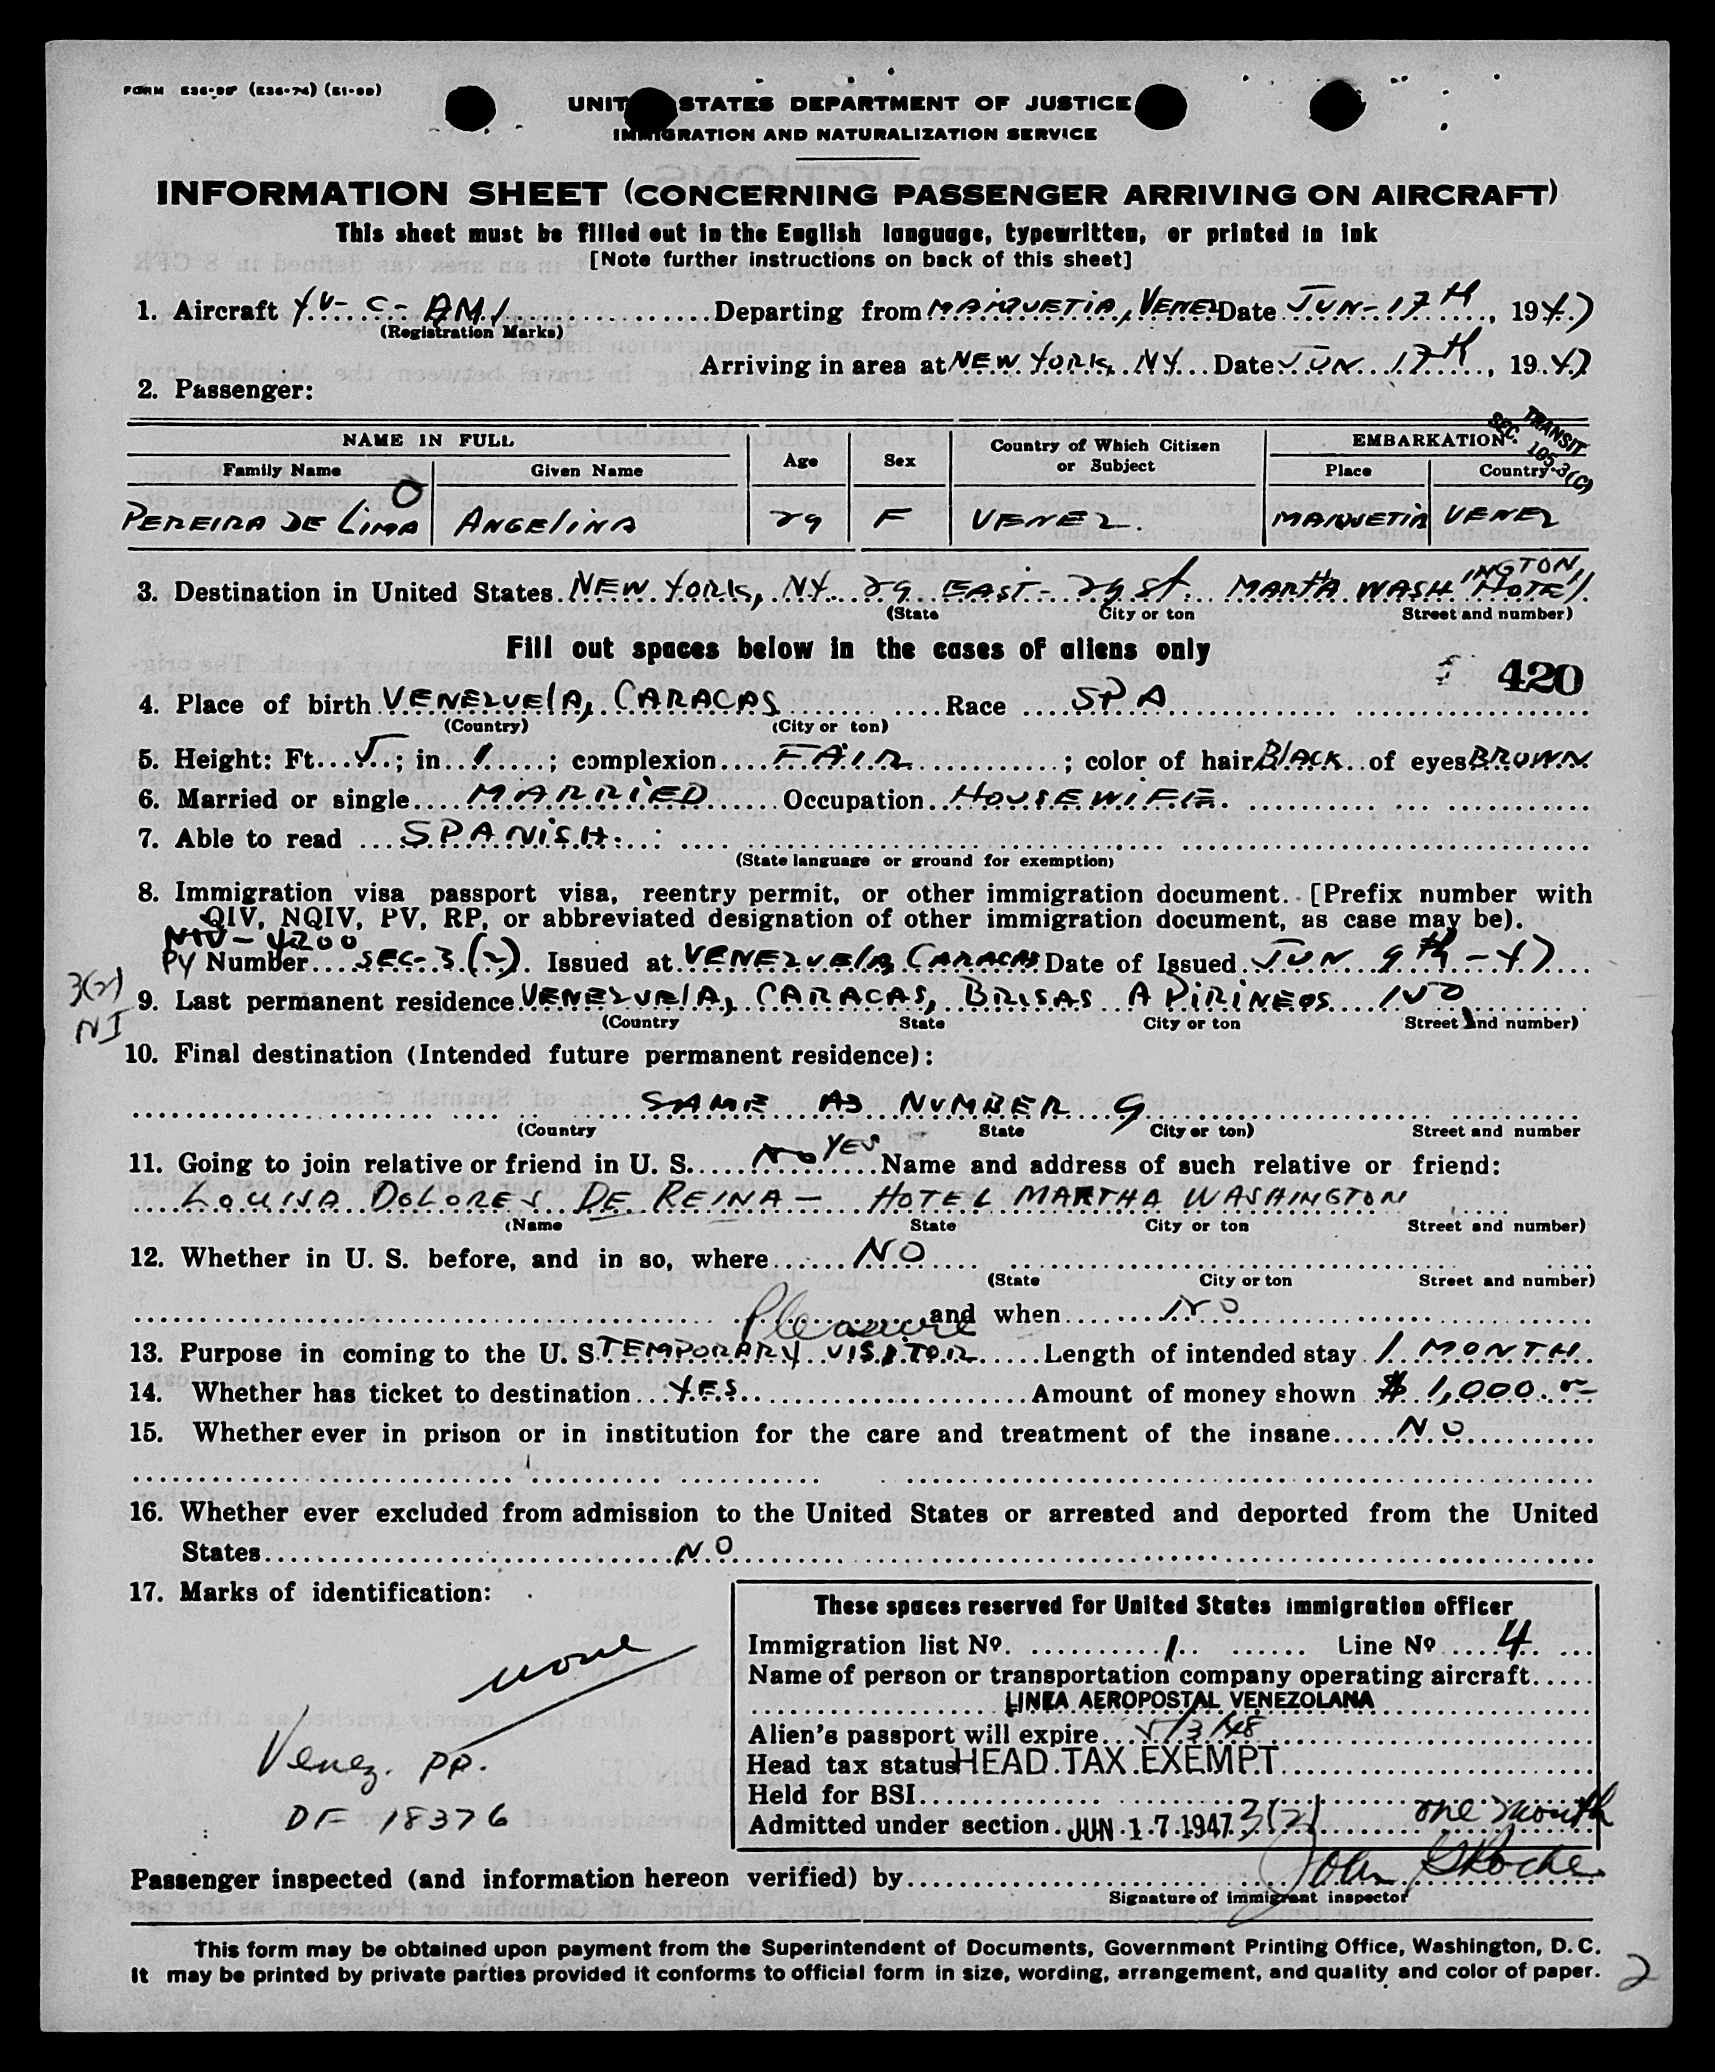 UNITED STATES DEPARTMENT OF JUSTICE
IMMIGRATION AND NATURALIZATION SERVICE
INFORMATION SHEET (CONCERNING PASSENGER ARRIVING ON AIRCRAFT)
This sheet must be filled out in the English language, typewritten, or printed in ink
[Note further instructions on back of this sheet]
1. Aircraft YV-C-AMI Departing from MAIQUETIA, VENEZ Date JUN-17th, 1947
(Registration Marks)
Arriving in area at NEW YORK, NY Date JUN 17th, 1947
2. Passenger:
TRANSIT
SEC. 105-3(C)
NAME IN FULL Age Sex Country of Which Citizen or Subject EMBARKATION
Family Name Given Name Place Country
O
PEREIRA DE LIMA ANGELINA 29 F VENEZ. MAIQUETIA VENEZ
3. Destination in United States NEW YORK, NY. 29 EAST-29 st. MARTHA WASHINGTON HOTEL
(State City or ton Street and number)
Fill out spaces below in the cases of aliens only
420
4. Place of birth VENEZUELA, CARACAS Race SPA
(Country) (City or ton)
5. Height: Ft. 5; in. 1; complexion FAIR; color of hair BLACK of eyes BROWN
6. Married or single MARRIED Occupation HOUSEWIFE.
7. Able to read SPANISH.
(State language or ground for exemption)
8. Immigration visa passport visa, reentry permit, or other immigration document. [Prefix number with
QIV, NQIV, PV, RP, or abbreviated designation of other immigration document, as case may be).
NIV-4200
PV Number SEC-3(2). Issued at VENEZUELA, CARACAS Date of Issued JUN 9th-47
3(2)
NI
9. Last permanent residence VENEZUELA, CARACAS, BRISAS A PIRINEOS 150
(Country State City or ton Street and number)
10. Final destination (Intended future permanent residence):
SAME AS NUMBER 9
(Country State City or ton) Street and number
11. Going to join relative or friend in U. S. NO YES Name and address of such relative or friend:
LOUISA DOLORES DE REINA - HOTEL MARTHA WASHINGTON
(Name State City or ton Street and number)
12. Whether in U. S. before, and in so, where NO
(State City or ton Street and number)
and when NO
Pleasure
13. Purpose in coming to the U. S. TEMPORARY VISITOR Length of intended stay 1 MONTH
14. Whether has ticket to destination YES Amount of money shown $ 1,000.
15. Whether ever in prison or in institution for the care and treatment of the insane NO
16. Whether ever excluded from admission to the United States or arrested and deported from the United
States NO
17. Marks of identification:
none
Venez. PP.
DF 18376
These spaces reserved for United States immigration officer
Immigration list No. 1 Line No 4
Name of person or transportation company operating aircraft
LINEA AEROPOSTAL VENEZOLANA
Alien's passport will expire 5/3/48
Head tax status HEAD TAX EXEMPT
Held for BSI
Admitted under section JUN 17 1947 3(2) one month
Passenger inspected (and information hereon verified) by John
Signature of immigrant inspector
This form may be obtained upon payment from the Superintendent of Documents, Government Printing Office, Washington, D. C.
It may be printed by private parties provided it conforms to official form in size, wording, arrangement, and quality and color of paper.
2